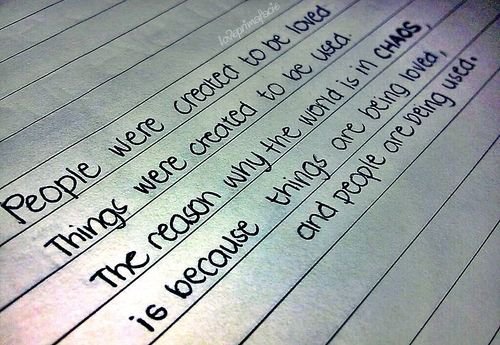 love.primafacie
People were created to be loved
Things were created to be used.
The reason why the world is in CHAOS,
is because things are being loved,
and people are being used.